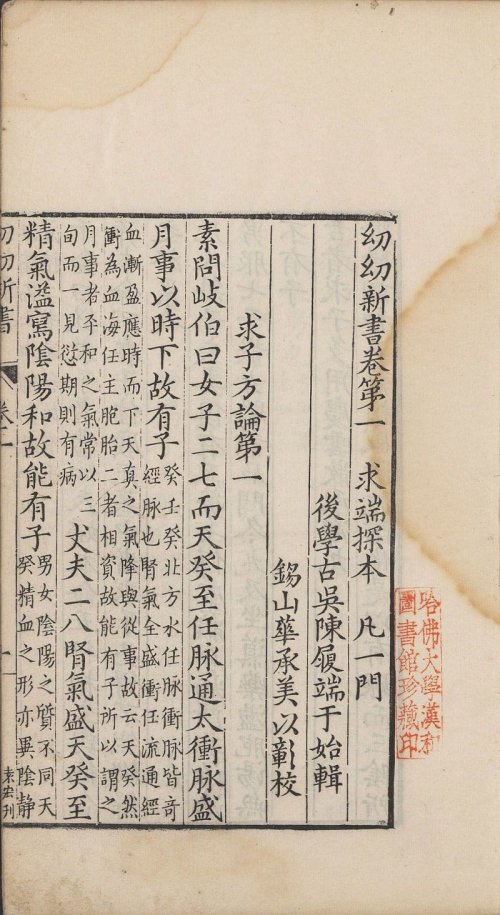 幼幼新書卷第一　求端探本　凡一門
後學古吳陳履端于始輯
錫山華承美以彰校
求子方論第一
素問岐伯曰女子二七而天癸至任脉通太衝脉盛
月事以時下故有子
癸壬癸北方水任脉衝脉皆奇
經脉也腎氣全盛衝任流通經
血漸盈應時而下天真之氣降與從事故云天癸然
衝為血海任主胞胎二者相資故能有子所以謂之
月事者平和之氣常以三
旬而一見愆期則有病
丈夫二八腎氣盛天癸至
精氣溢寫陰陽和故能有子
男女陰陽之質不同天
癸精血之形亦異陰靜
幼幼新書
卷一
一
哈佛大學漢和
圖書館珍藏印